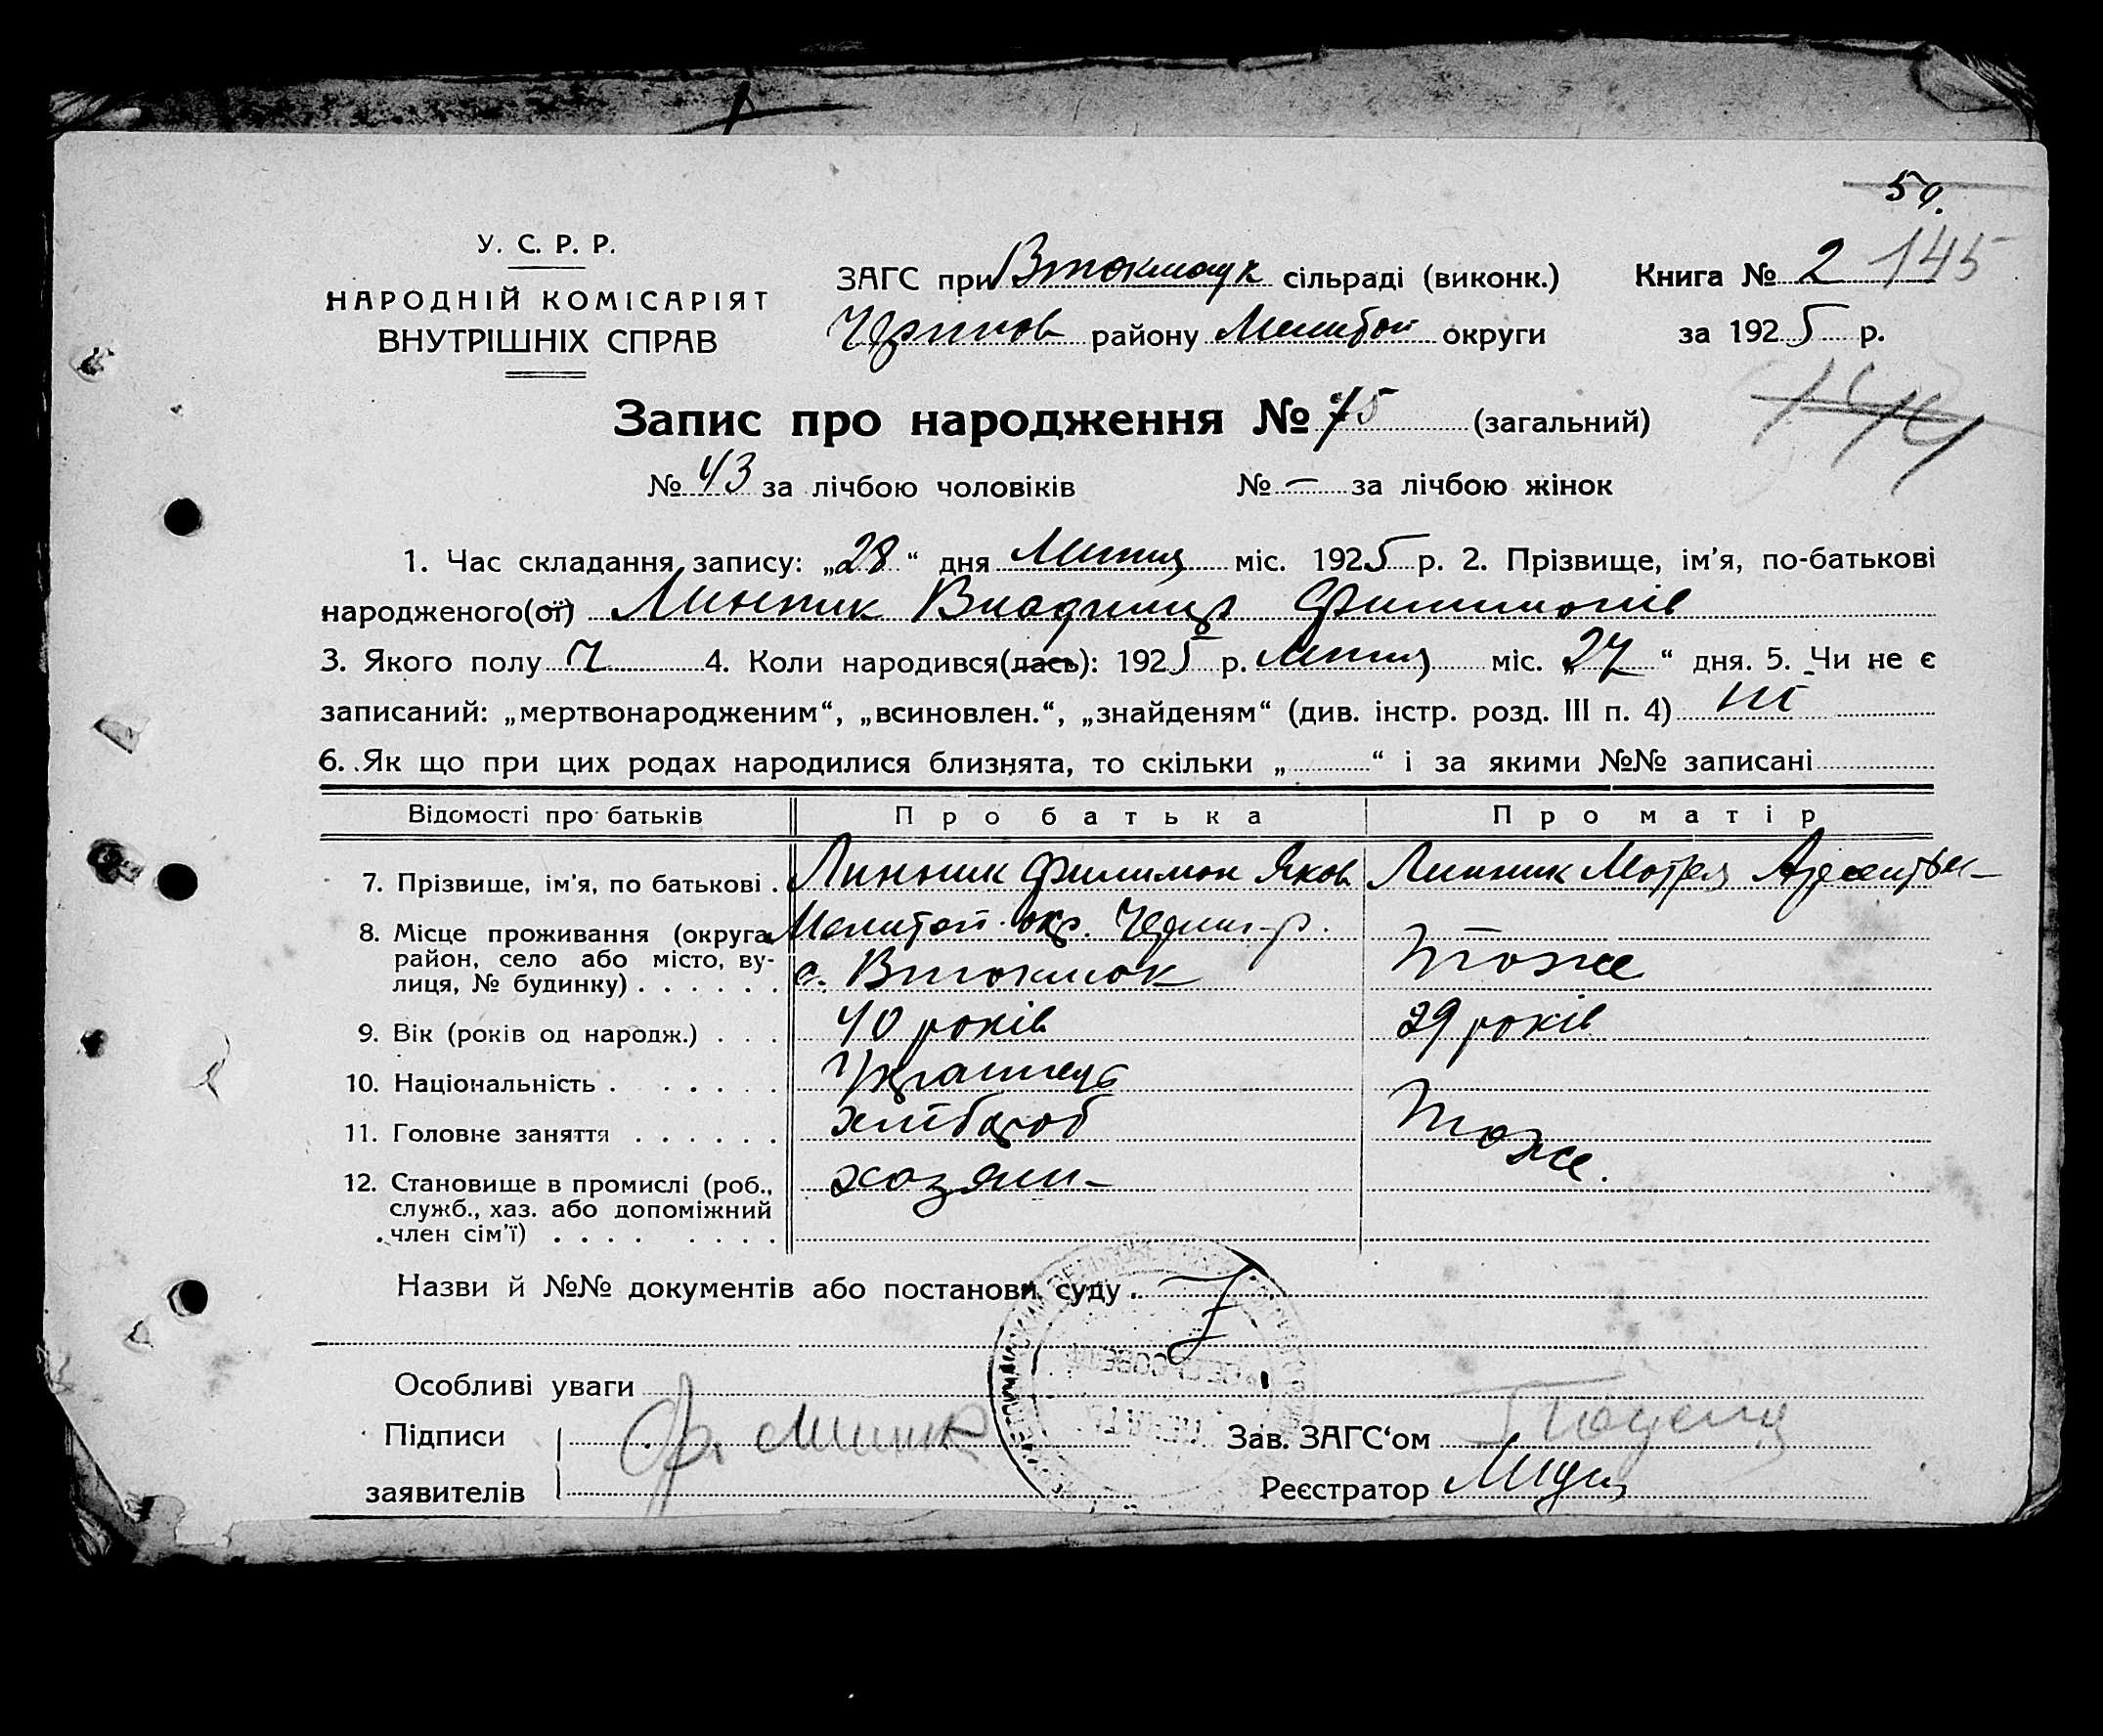 59.
У. С. Р. Р.
НАРОДНІЙ КОМІСАРІЯТ
ВНУТРІШНІХ СПРАВ
ЗАГС при Втокмацк сільраді (виконк.)
Книга № 2 145
Черниов району Мелитоп округи
за 1925 р.
144
Запис про народження № 75 (загальний)
№ 43 за лічбою чоловіків № — за лічбою жінок
1. Час складання запису: „28“ дня Липня міс. 1925 р. 2. Прізвище, ім'я, по-батькові
народженого(ої) Линник Владимир Филимонів
3. Якого полу Ч 4. Коли народився(лась): 1925 р. Липня міс. „27“ дня. 5. Чи не є
записаний: „мертвонародженим“, „всиновлен.“, „знайденям“ (див. інстр. розд. III п. 4) ні
6. Як що при цих родах народилися близнята, то скільки „ “ і за якими №№ записані
Відомості про батьків Про батька Про матір
7. Прізвище, ім'я, по батькові . Линник Филимон Яков Линник Мотря
8. Місце проживання (округа, Мелитоп окр. Черниг-р.
район, село або місто, ву-
лиця, № будинку) . . . . . . с. Втокмак тоже
9. Вік (років од народж.) . . . 40 років 29 років
10. Національність . . . . . . Українець
11. Головне заняття . . . . . . хлібороб тоже.
12. Становище в промислі (роб., хозяин-
служб., хаз. або допоміжний
член сім'ї) . . . . . . . .
Назви й №№ документів або постанови суду .
Особливі уваги
Підписи Ф. Линник Зав. ЗАГС'ом
заявителів Реєстратор